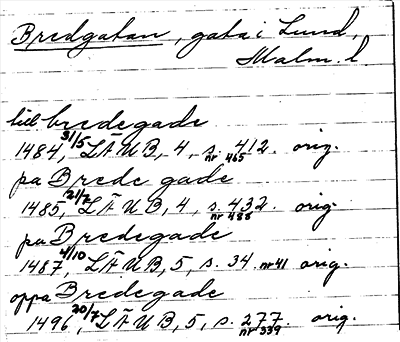 Bredgatan, gata i Lund,
Malm. l.
vid bredegade
1484, 31/5 LÄUB, 4, s. 412. orig.
nr 465
pa Brede gade
1485, 21/7 LÄUB, 4, s. 432. orig.
nr 488
pa Bredegade
1487, 4/10 LÄUB, 5, s. 34 nr 41 orig.
oppa Bredegade
1496, 20/7 LÄUB, 5, s. 277. orig.
nr 339